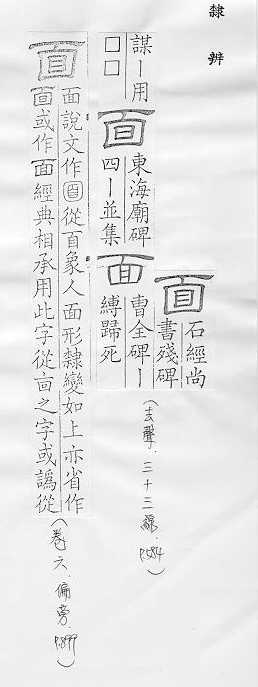 隸辨
面
石經尚
書殘碑
謀丨用
□□
面
東海廟碑
四丨並集
面
曹全碑丨
縛歸死
(去聲．三十三線．P.584)
面
面說文作圓從𦣻象人面形隸變如上亦省作
靣或作面經典相承用此字從靣之字或譌從
(卷六．偏旁．P.899)